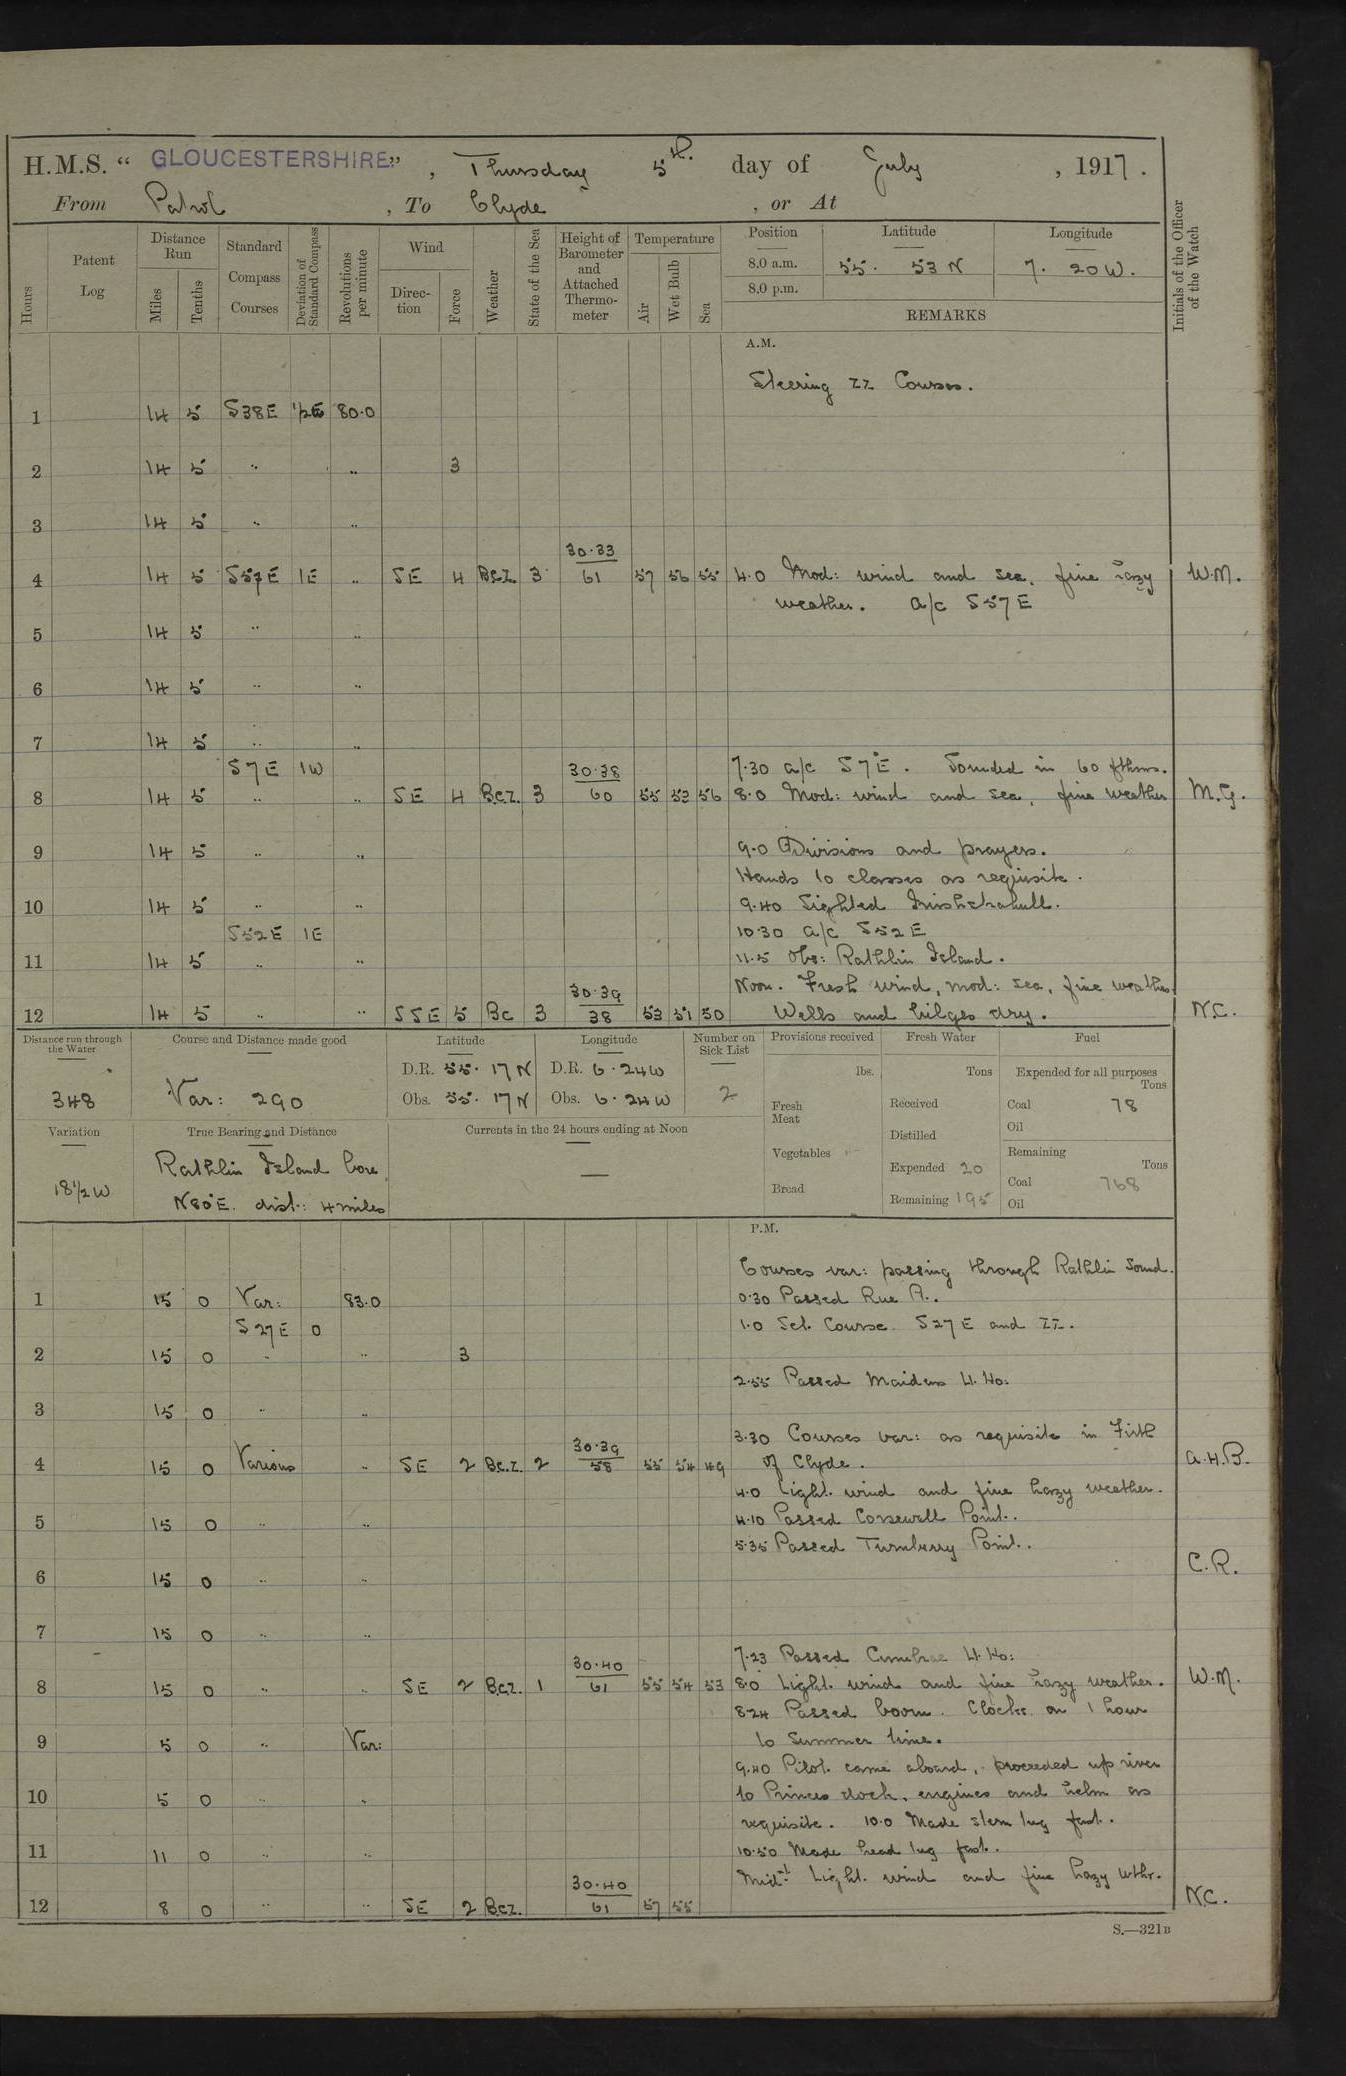 H.M.S. “ GLOUCESTERSHIRE ”, Thursday 5th. day of July , 1917.
From Patrol , To Clyde , or At
Hours
Patent Log
Distance Run
Miles
Tenths
Standard Compass Courses
Deviation of Standard Compass
Revolutions per minute
Wind
Direction
Force
Weather
State of the Sea
Height of Barometer and Attached Thermometer
Temperature
Air
Wet Bulb
Sea
Position Latitude Longitude
8.0 a.m. 55. 53 N 7. 20 W.
8.0 p.m.
REMARKS
Initials of the Officer of the Watch
A.M.
Steering ZZ Courses.
1 14 5 S38E 1/2E 80.0
2 14 5 " " 3
3 14 5 " "
30.33
4 14 5 S57E 1E " SE 4 B.C.Z. 3 61 57 56 55 4.0 Mod: wind and sea, fine hazy W.M.
weather. a/c S57E
5 14 5 " "
6 14 5 " "
7 14 5 " "
S7E 1W 30.38 7.30 a/c S7°E. Sounded in 60 fthms.
8 14 5 " " SE 4 B.C.Z. 3 60 55 53 56 8.0 Mod: wind and sea, fine weather M.G.
9 14 5 " " 9.0 Divisions and prayers.
Hands to classes as requisite.
10 14 5 " " 9.40 Sighted Inishtrahull.
S52E 1E 10.30 a/c S52E
11 14 5 " " 11.5 Obs: Rathlin Island.
30.39 Noon. Fresh wind, mod: sea, fine weather.
12 14 5 " " SSE 5 Bc 3 38 53 51 50 Wells and bilges dry. N.C.
Distance run through the Water
348
Course and Distance made good
Var: 290
Latitude
D.R. 55. 17 N
Obs. 55. 17 N
Longitude
D.R. 6. 24 W
Obs. 6. 24 W
Number on Sick List
2
Provisions received
lbs.
Fresh Meat
Vegetables
Bread
Fresh Water
Tons
Received
Distilled
Expended 20
Remaining 195
Fuel
Expended for all purposes
Tons
Coal 78
Oil
Remaining
Tons
Coal 768
Oil
Variation
18 1/2 W
True Bearing and Distance
Rathlin Island bore
N80°E. dist: 4 miles
Currents in the 24 hours ending at Noon
—
P.M.
Courses var: passing through Rathlin Sound.
1 15 0 Var: 83.0 0.30 Passed Rue Pt.
S27E 0 1.0 Set Course S27E and ZZ.
2 15 0 " " 3
2.55 Passed Maidens Lt. Ho:
3 15 0 " "
30.39 3.30 Courses var: as requisite in Firth
4 15 0 Various " SE 2 B.C.Z. 2 58 55 54 49 of Clyde. A.H.B.
4.0 Light wind and fine hazy weather.
5 15 0 " " 4.10 Passed Corsewall Point.
5.35 Passed Turnberry Point.
C.R.
6 15 0 " "
7 15 0 " "
30.40 7.23 Passed Cumbrae Lt. Ho:
8 15 0 " " SE 2 B.C.Z. 1 61 55 54 53 8.0 Light wind and fine hazy weather. W.M.
8.24 Passed boom. Clocks on 1 hour
9 5 0 " Var: to Summer time.
9.40 Pilot came aboard, proceeded up river
10 5 0 " " to Princes dock, engines and helm as
requisite. 10.0 Made stern tug fast.
11 11 0 " " 10.50 Made head tug fast.
30.40 Midt. Light wind and fine hazy wthr.
12 8 0 " " SE 2 B.C.Z. 61 57 55 N.C.
S.—321B